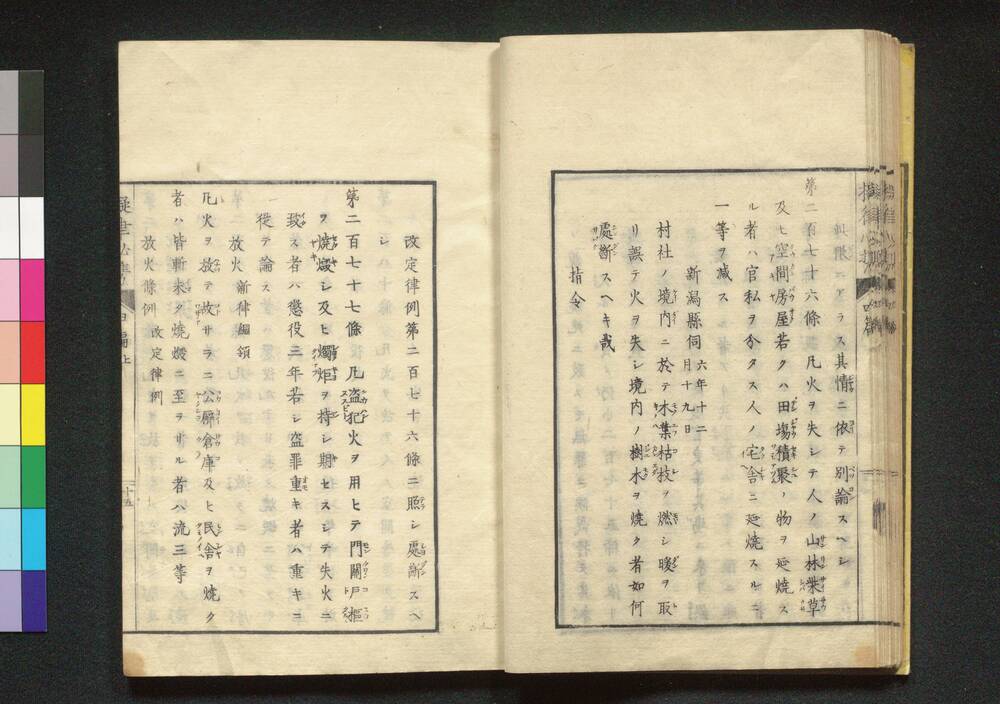 其情ニ依テ別論スヘシ
第二百七十六條凡火ヲ失シテ人ノ山林柴草
及ヒ空間房屋若クハ田塲積聚ノ物ヲ延燒ス
ル者ハ官私ヲ分タス人ノ宅舎ニ延燒スルニ
一等ヲ减ス
新潟縣伺 六年十二月十九日
村社ノ境内ニ於テ木葉枯枝ヲ燃シ暖ヲ取
リ誤テ火ヲ失シ境内ノ樹木ヲ燒ク者如何
處断スヘキ哉
指令
改定律例第二百七十六條ニ照シ處断スヘ
シ
第二百七十七條凡盗犯火ヲ用ヒテ門關戸樞
ヲ燒燬シ及ヒ燭炬ヲ持シ期セスシテ失火ニ
致ス者ハ懲役三年若シ盗罪重キ者ハ重キニ
従テ論ス
放火 新律綱領
凡火ヲ放テ故サラニ公廨倉庫及ヒ民舎ヲ燒ク
者ハ皆斬未タ燒燬ニ至ラサル者ハ流三等
放火條例 改定律例